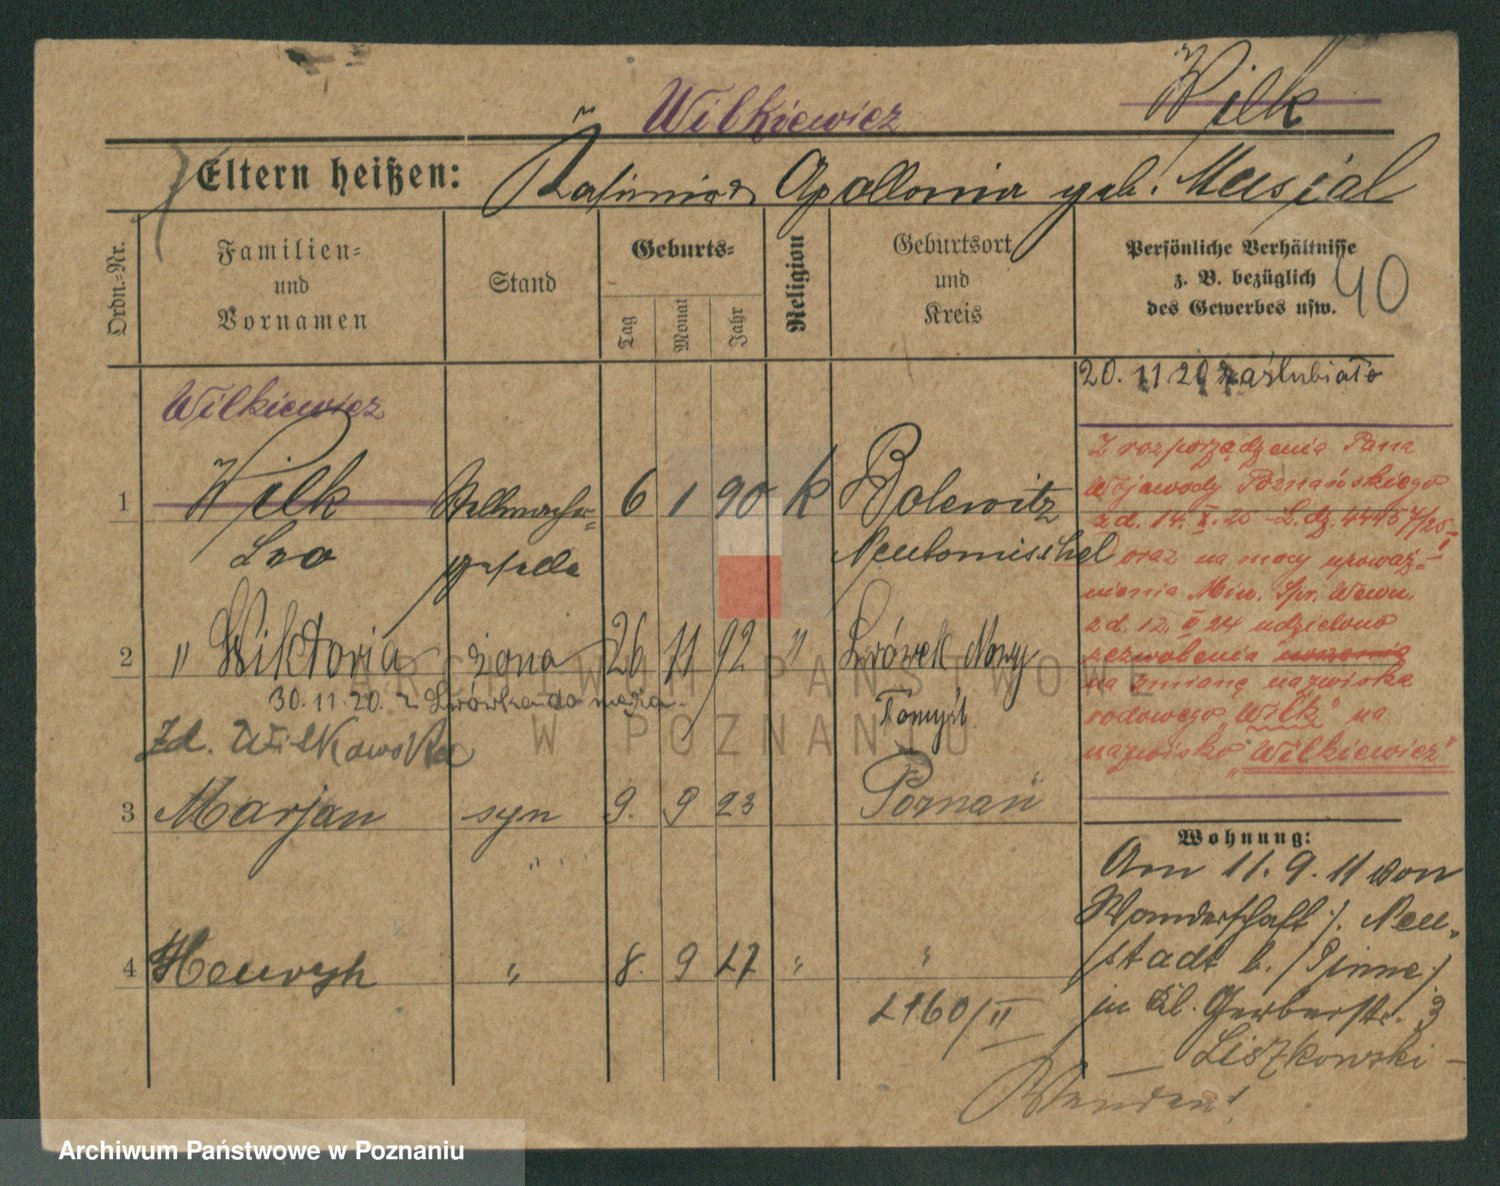 Wilkiewicz
Wilk
Eltern heißen: Kasimir & Apollonia geb. Musial
Ordn.-Nr.
Familien- und Vornamen
Stand
Geburts-
Tag
Monat
Jahr
Religion
Geburtsort und Kreis
Persönliche Verhältnisse
z. B. bezüglich
des Gewerbes usw.
40
20. 11 20 zaślubiało
Wilkiewicz
1 Wilk Stellmacher- 6 1 90 k Bolewitz
Leo geselle Neutomischel
2 " Wiktoria żona 26 11 92 " Lwówek Nowy
30.11.20. z Lwówka do męża Tomyśl.
Zd. Wilkowska
3 Marjan syn 9. 9 23 Poznań
" "
4 Henryk " 8. 9 27 " "
Z rozporządzenia Pana
Wojewody Poznańskiego
z d. 14. X. 25 L. dz. 44457/25
oraz na mocy upoważ-
nienia Min. Spr. Wewn.
z d. 12. II 24 udzielono
zezwolenia noszenia
na zmianę nazwiska
rodowego „Wilk" na
nazwisko „Wilkiewicz"
Wohnung:
Am 11. 9. 11 von
Wanderschaft /. Neu-
stadt b. /Pinne/
in Kl. Gerberstr. 3
Liszkowski
/II
ARCHIWUM PAŃSTWOWE
W POZNANIU
Archiwum Państwowe w Poznaniu